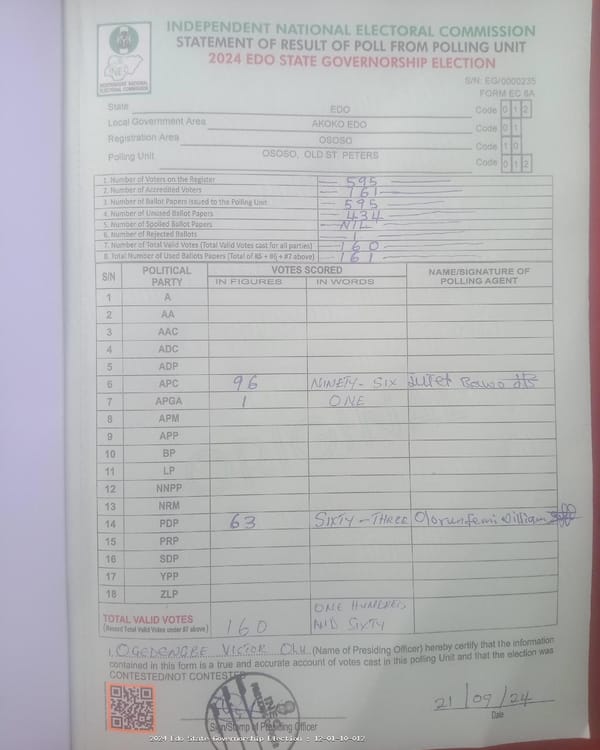 INDEPENDENT NATIONAL ELECTORAL COMMISSION
STATEMENT OF RESULT OF POLL FROM POLLING UNIT
2024 EDO STATE GOVERNORSHIP ELECTION
INDEPENDENT NATIONAL
ELECTORAL COMMISSION
S/N: EG/0000235
FORM EC 8A
State EDO Code 0 1 2
Local Government Area AKOKO EDO Code 0 1
Registration Area OSOSO Code 1 0
Polling Unit OSOSO, OLD ST. PETERS Code 0 1 2
1. Number of Voters on the Register 595
2. Number of Accredited Voters 161
3. Number of Ballot Papers issued to the Polling Unit 595
4. Number of Unused Ballot Papers 434
5. Number of Spoiled Ballot Papers NIL
6. Number of Rejected Ballots 1
7. Number of Total Valid Votes (Total Valid Votes cast for all parties) 160
8. Total Number of Used Ballots Papers (Total of #5 + #6 + #7 above) 161
S/N POLITICAL PARTY VOTES SCORED NAME/SIGNATURE OF POLLING AGENT
IN FIGURES IN WORDS
1 A
2 AA
3 AAC
4 ADC
5 ADP
6 APC 96 NINETY-SIX
7 APGA 1 ONE
8 APM
9 APP
10 BP
11 LP
12 NNPP
13 NRM
14 PDP 63 SIXTY-THREE Olorunfemi William
15 PRP
16 SDP
17 YPP
18 ZLP
TOTAL VALID VOTES 160 ONE HUNDRED AND SIXTY
(Record Total Valid Votes under #7 above)
I, VICTOR (Name of Presiding Officer) hereby certify that the information
contained in this form is a true and accurate account of votes cast in this polling Unit and that the election was
CONTESTED/NOT CONTESTED
21/09/24
Sign/Stamp of Presiding Officer Date
2024 Edo State Governorship Election : 12-01-10-012